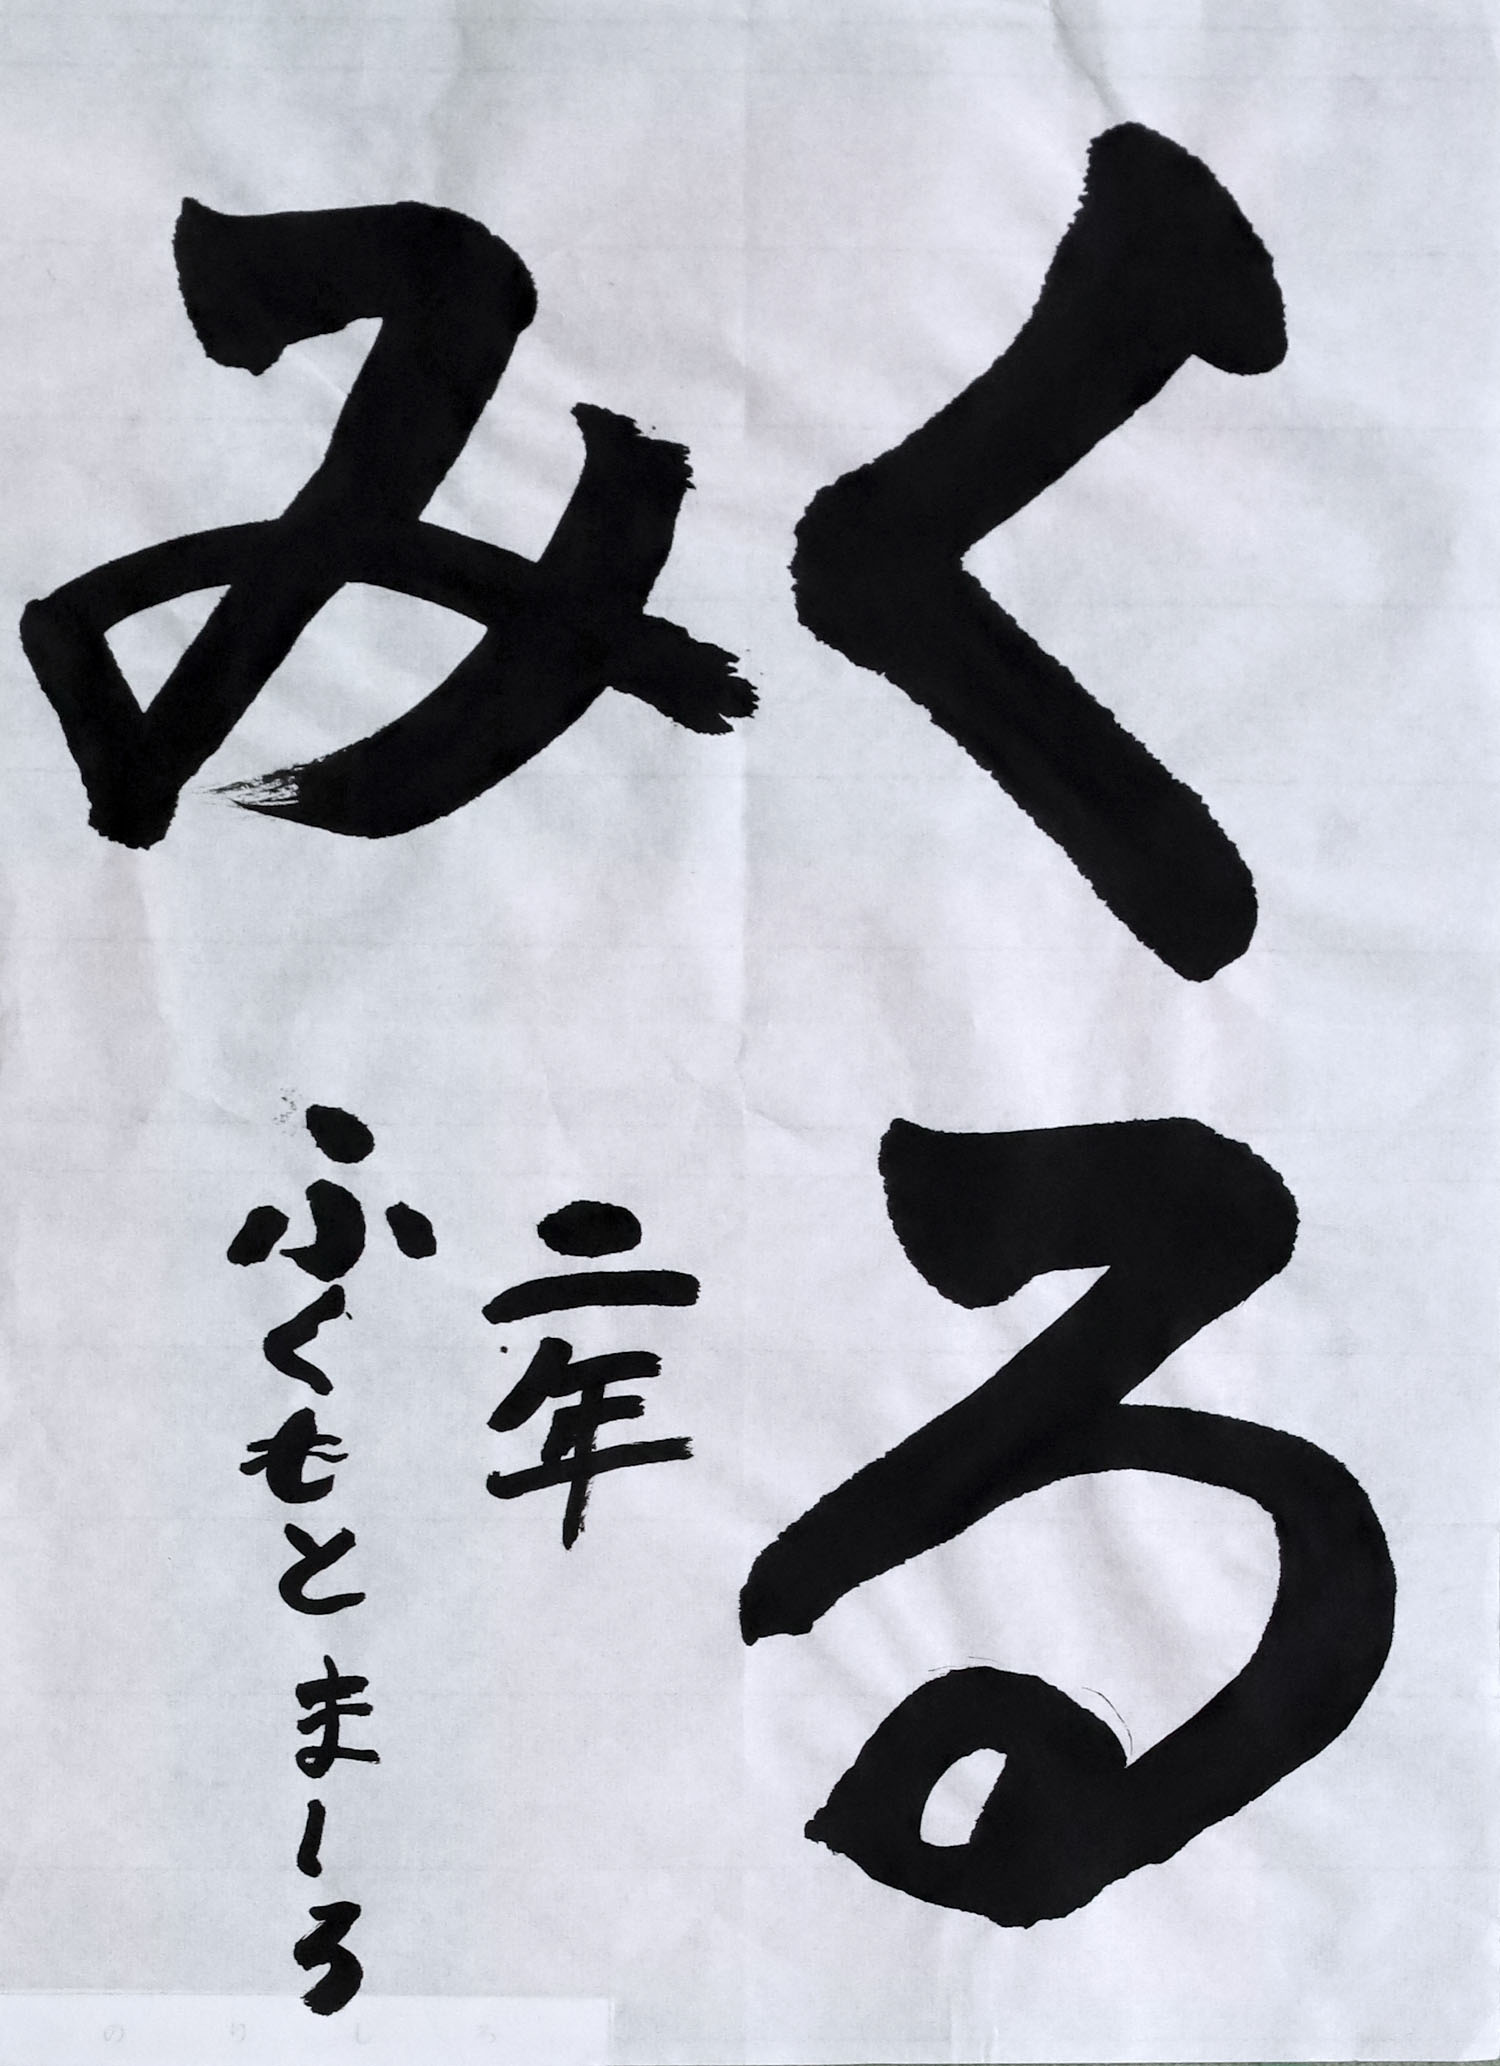 くる
み
二年
ふくもとましろ
のりしろ